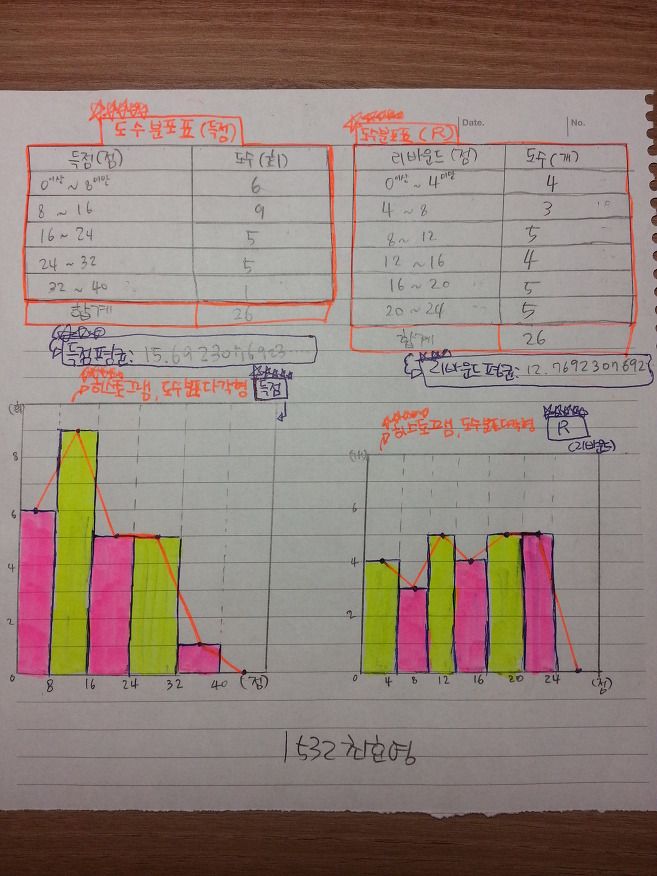 도수분포표(득점)
득점(점) 도수(회)
0이상~8미만 6
8 ~ 16 9
16 ~ 24 5
24 ~ 32 5
32 ~ 40 1
합계 26
득점평균: 15.6923076923...
Date. No.
도수분포표(R)
리바운드(점) 도수(개)
0이상~4미만 4
4 ~ 8 3
8 ~ 12 5
12 ~ 16 4
16 ~ 20 5
20 ~ 24 5
합계 26
리바운드평균: 12.7692307692
히스토그램, 도수분포다각형 득점
(회)
8
6
4
2
0 8 16 24 32 40 (점)
히스토그램, 도수분포다각형 R
(리바운드)
6
4
2
0 4 8 12 16 20 24 (점)
1532